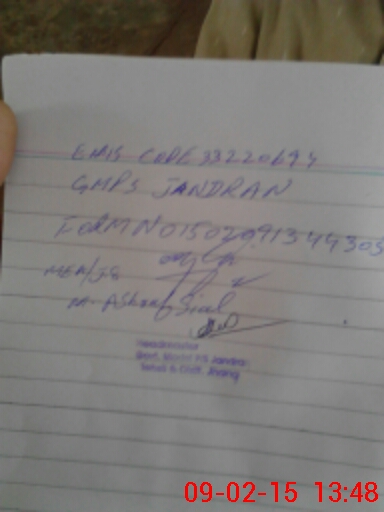 EMIS CODE 33220694
GMPS JANDRAN
FORM NO 1502091344303
MEA/J8
M. Ashraf Sial
Headmaster
Govt. Model P/S Jandran
Tehsil & Distt. Jhang
09-02-15 13:48